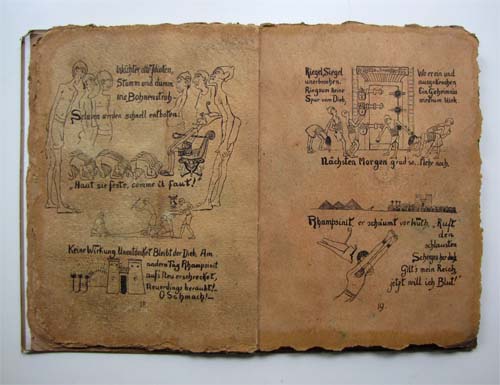 Wächter auf Pfosten,
Stumm und dumm
wie Bohnenstroh.
Sclaven werden schnell entboten:
„Haut sie feste, comme il faut!"
Keine Wirkung. Unentdecket Bleibt der Dieb. Am
andern Tag Rhampsinit
aufs Neu erschrecket,
Neuerdings beraubt!..
O Schmach!—
18
Riegel, Siegel
unerbrochen,
Ringsum keine
Spur vom Dieb,
Wo er ein und
ausgekrochen
Ein Geheimnis
wiederum blieb.
Nächsten Morgen grad so.. Mehr noch.
Rhampsinit, er schäumt vor Wuth, „Ruft
den
schlausten
Schergen her doch
Gilt's mein Reich,
jetzt will ich Blut!"
19